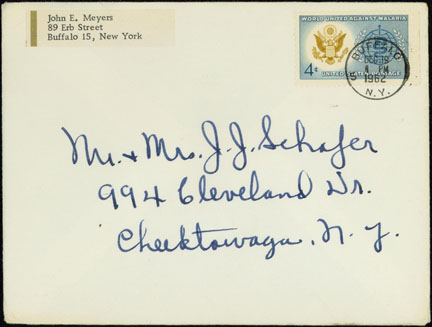 John E. Meyers
89 Erb Street
Buffalo 15, New York
WORLD UNITED AGAINST MALARIA
4¢
UNITED STATES POSTAGE
BUFFALO
DEC 19
4 PM
1962
5
N.Y.
Mr. + Mrs. J. J. Schafer
994 Cleveland Dr.
Cheektowaga, N.Y.